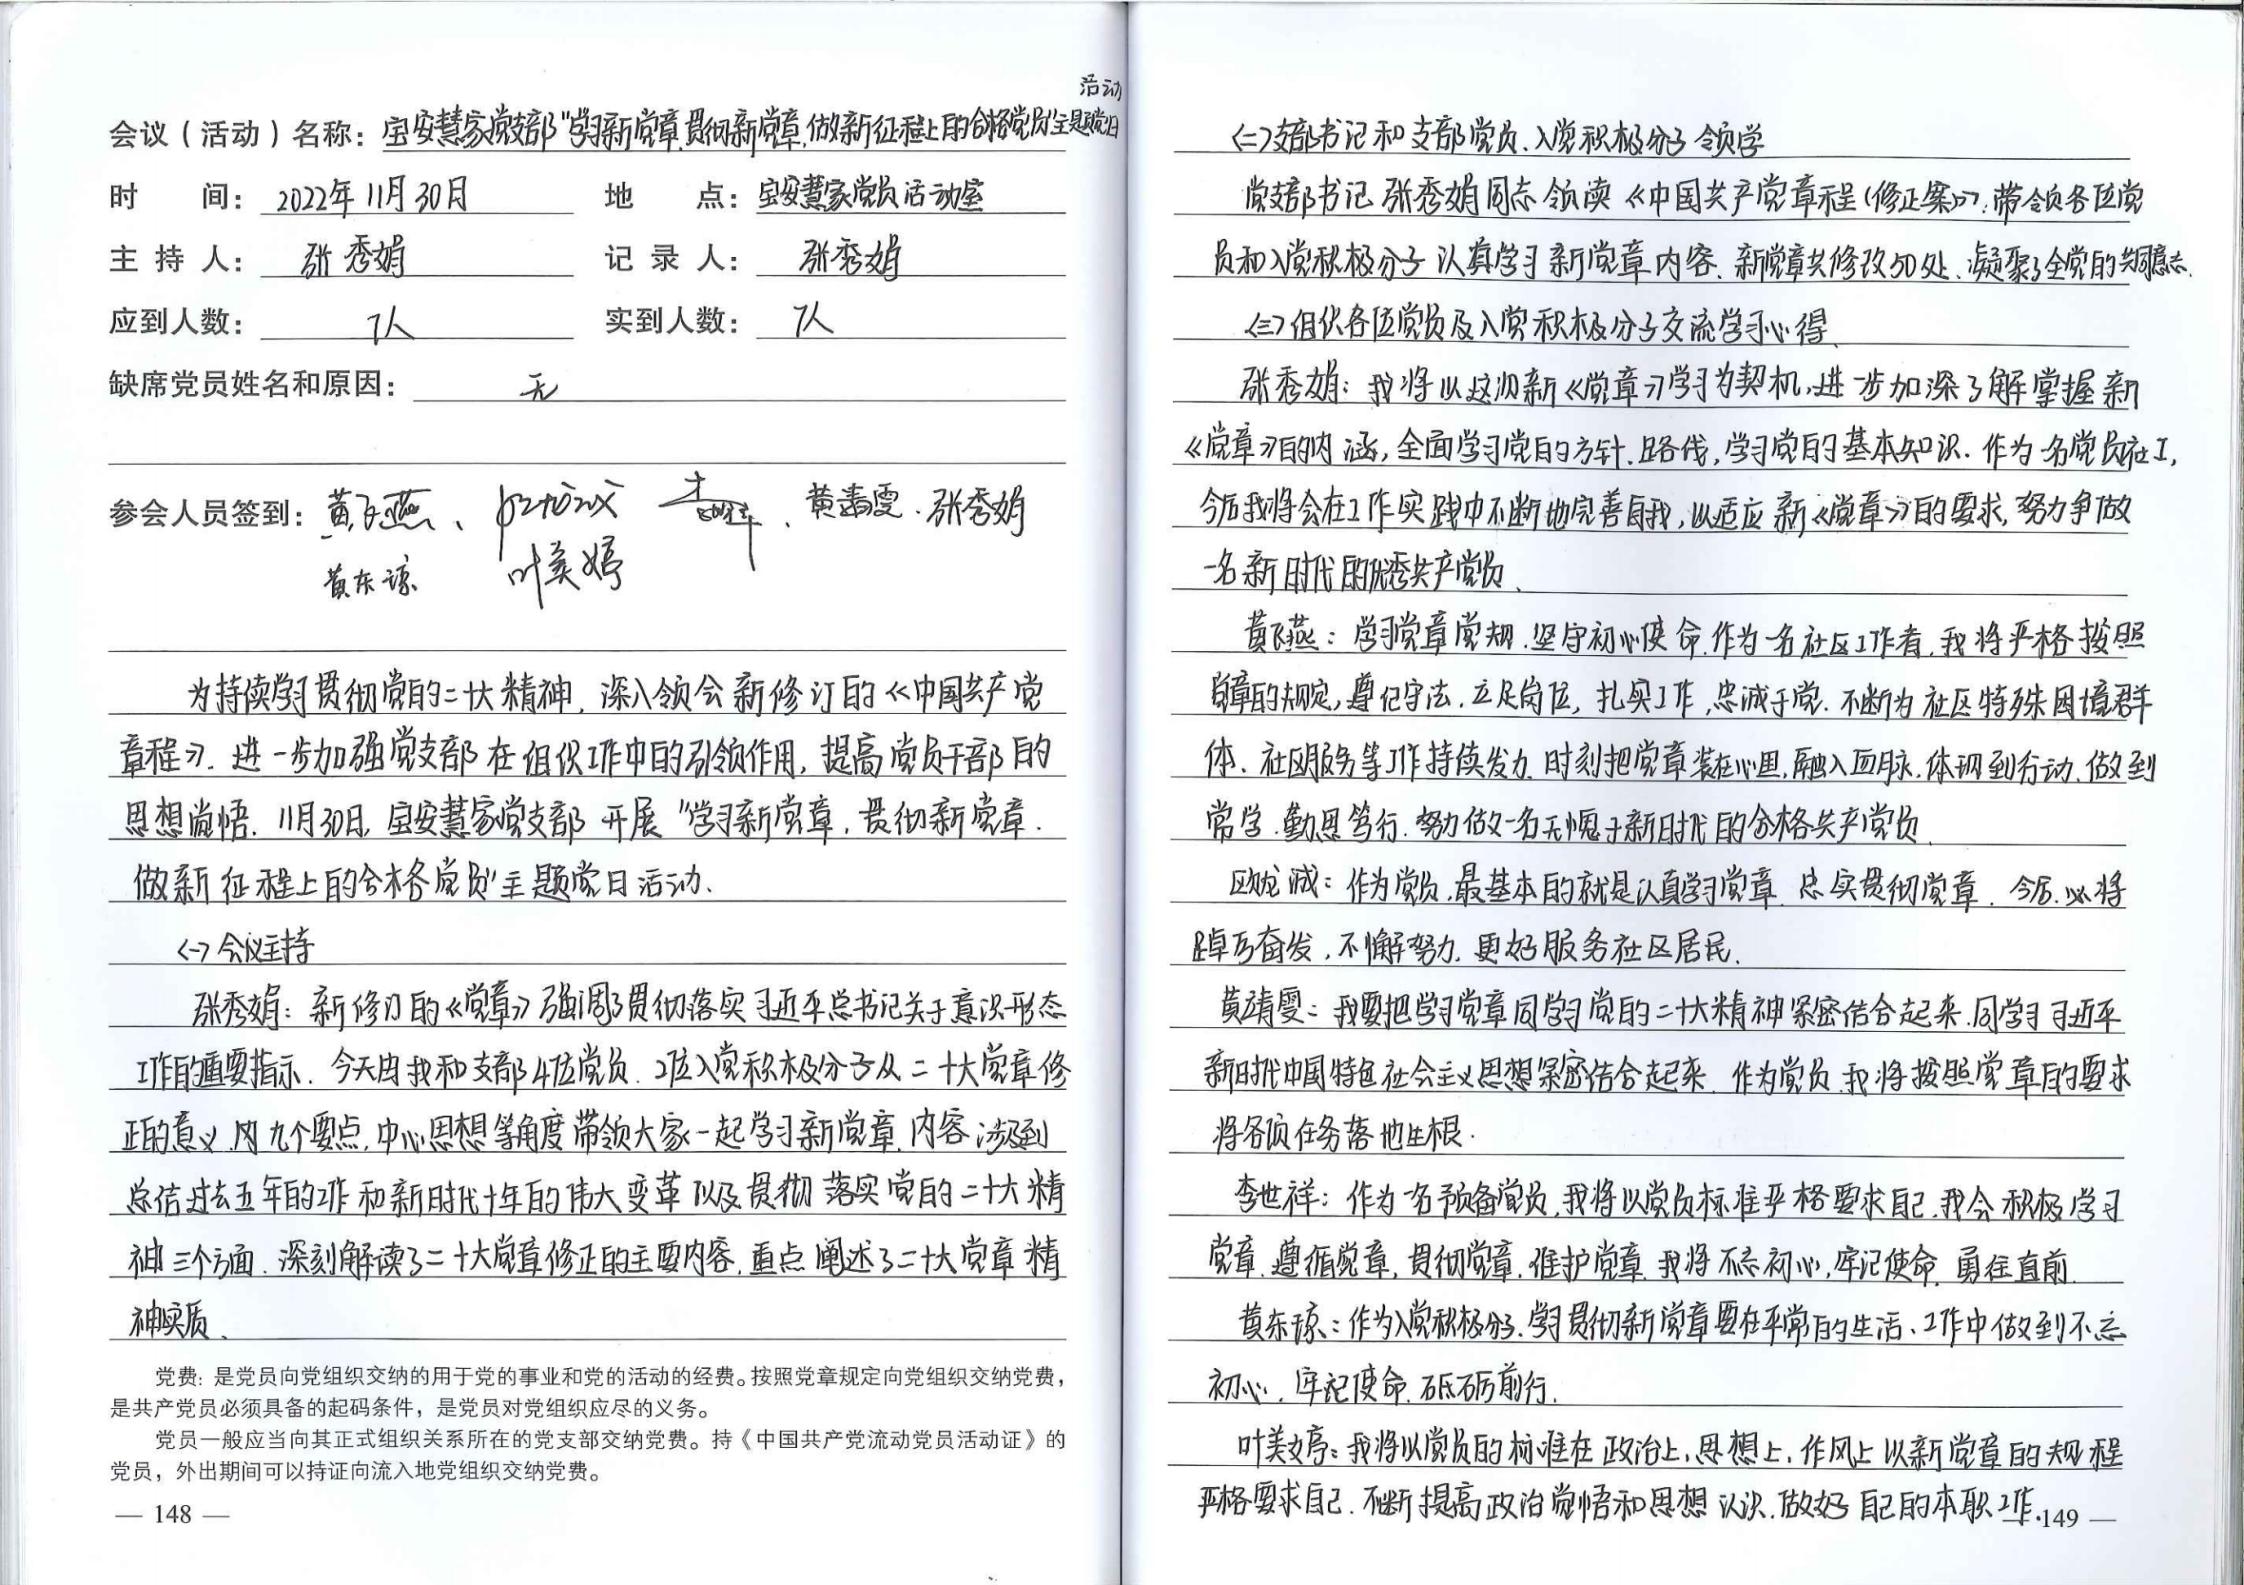 活动
会议（活动）名称：宝安慧家党支部“学习新党章，贯彻新党章，做新征程上的合格党员”主题党日
时 间：2022年11月30日 地 点：宝安慧家党员活动室
主 持 人：张秀娟 记 录 人：张秀娟
应到人数：7人 实到人数：7人
缺席党员姓名和原因：无
参会人员签到：黄飞燕、黄靖雯、张秀娟
黄东琼 叶美婷
为持续学习贯彻党的二十大精神，深入领会新修订的《中国共产党
章程》，进一步加强党支部在组织工作中的引领作用，提高党员干部的
思想觉悟，11月30日，宝安慧家党支部开展“学习新党章，贯彻新党章，
做新征程上的合格党员”主题党日活动、
<一>会议主持
张秀娟：新修订的《党章》强调了贯彻落实习近平总书记关于意识形态
工作的重要指示，今天由我和支部4位党员、2位入党积极分子从二十大党章修
正的意义、九个要点，中心思想等角度带领大家一起学习新党章，内容涉及到
总结过去五年的工作和新时代十年的伟大变革以及贯彻落实党的二十大精
神三个方面，深刻解读了二十大党章修正的主要内容，重点阐述了二十大党章精
神实质、
党费：是党员向党组织交纳的用于党的事业和党的活动的经费。按照党章规定向党组织交纳党费，
是共产党员必须具备的起码条件，是党员对党组织应尽的义务。
党员一般应当向其正式组织关系所在的党支部交纳党费。持《中国共产党流动党员活动证》的
党员，外出期间可以持证向流入地党组织交纳党费。
— 148 —
<二>支部书记和支部党员、入党积极分子领学
党支部书记张秀娟同志领读《中国共产党章程（修正案）》，带领各位党
员和入党积极分子认真学习新党章内容，新党章共修改50处，凝聚了全党的共同意志，
<三>组织各位党员及入党积极分子交流学习心得、
张秀娟：我将以这次新《党章》学习为契机，进一步加深了解掌握新
《党章》的内涵，全面学习党的方针、路线，学习党的基本知识、作为一名党员社工，
今后我将会在工作实践中不断地完善自我，以适应新《党章》的要求，努力争做
一名新时代的优秀共产党员、
黄飞燕：学习党章党规，坚守初心使命，作为一名社区工作者，我将严格按照
党章的规定，遵纪守法，立足岗位，扎实工作，忠诚于党，不断为社区特殊困境群
体、社区服务等工作持续发力，时刻把党章装在心里，融入血脉，体现到行动，做到
常学、勤思笃行，努力做一名无愧于新时代的合格共产党员、
欧龙诚：作为党员，最基本的就是认真学习党章，忠实贯彻党章，今后，必将
踔厉奋发，不懈努力，更好服务社区居民、
黄靖雯：我要把学习党章同学习党的二十大精神紧密结合起来，同学习习近平
新时代中国特色社会主义思想紧密结合起来，作为党员，我将按照党章的要求
将各项任务落地生根、
李世祥：作为一名预备党员，我将以党员标准严格要求自己，我会积极学习
党章，遵循党章，贯彻党章，维护党章，我将不忘初心，牢记使命，勇往直前、
黄东琼：作为入党积极分子，学习贯彻新党章要在平常的生活、工作中做到不忘
初心，牢记使命，砥砺前行、
叶美婷：我将以党员的标准在政治上，思想上，作风上以新党章的规程
严格要求自己，不断提高政治觉悟和思想认识，做好自己的本职工作、
149 —